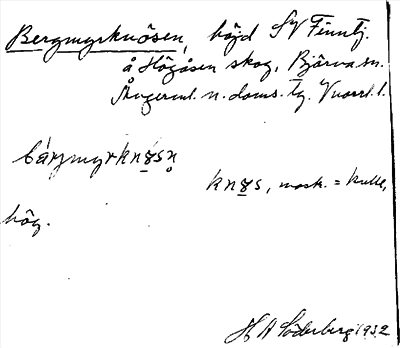 Bergmyrknösen, höjd SV Finntj.
å Högåsen skog, Björna sn.
Ångerml. n. doms. tg. Vnorrl. l.
bárjmyrknøsn̥
knøs, mask. = kulle,
hög.
H A Söderberg 1932